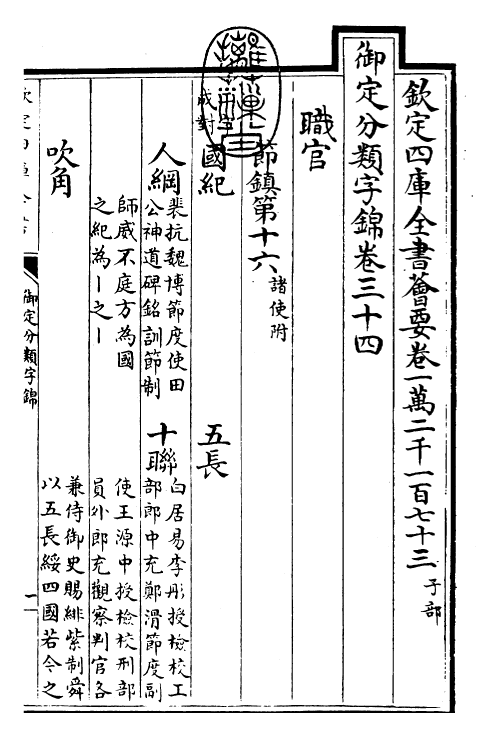 欽定四庫全書薈要卷一萬二千一百七十三 子部
御定分類字錦卷三十四
職官
節鎮第十六 諸使附
成對 國紀 五長
人綱 裴抗魏博節度使田
公神道碑銘訓節制
師威不庭方為國
之紀為｜之｜
十聯 白居易李彤授檢校工
部郎中充鄭滑節度副
使王源中授檢校刑部
員外郎充觀察判官各
兼侍御史賜緋紫制舜
以五長綏四國若今之
吹角
御定分類字錦
一